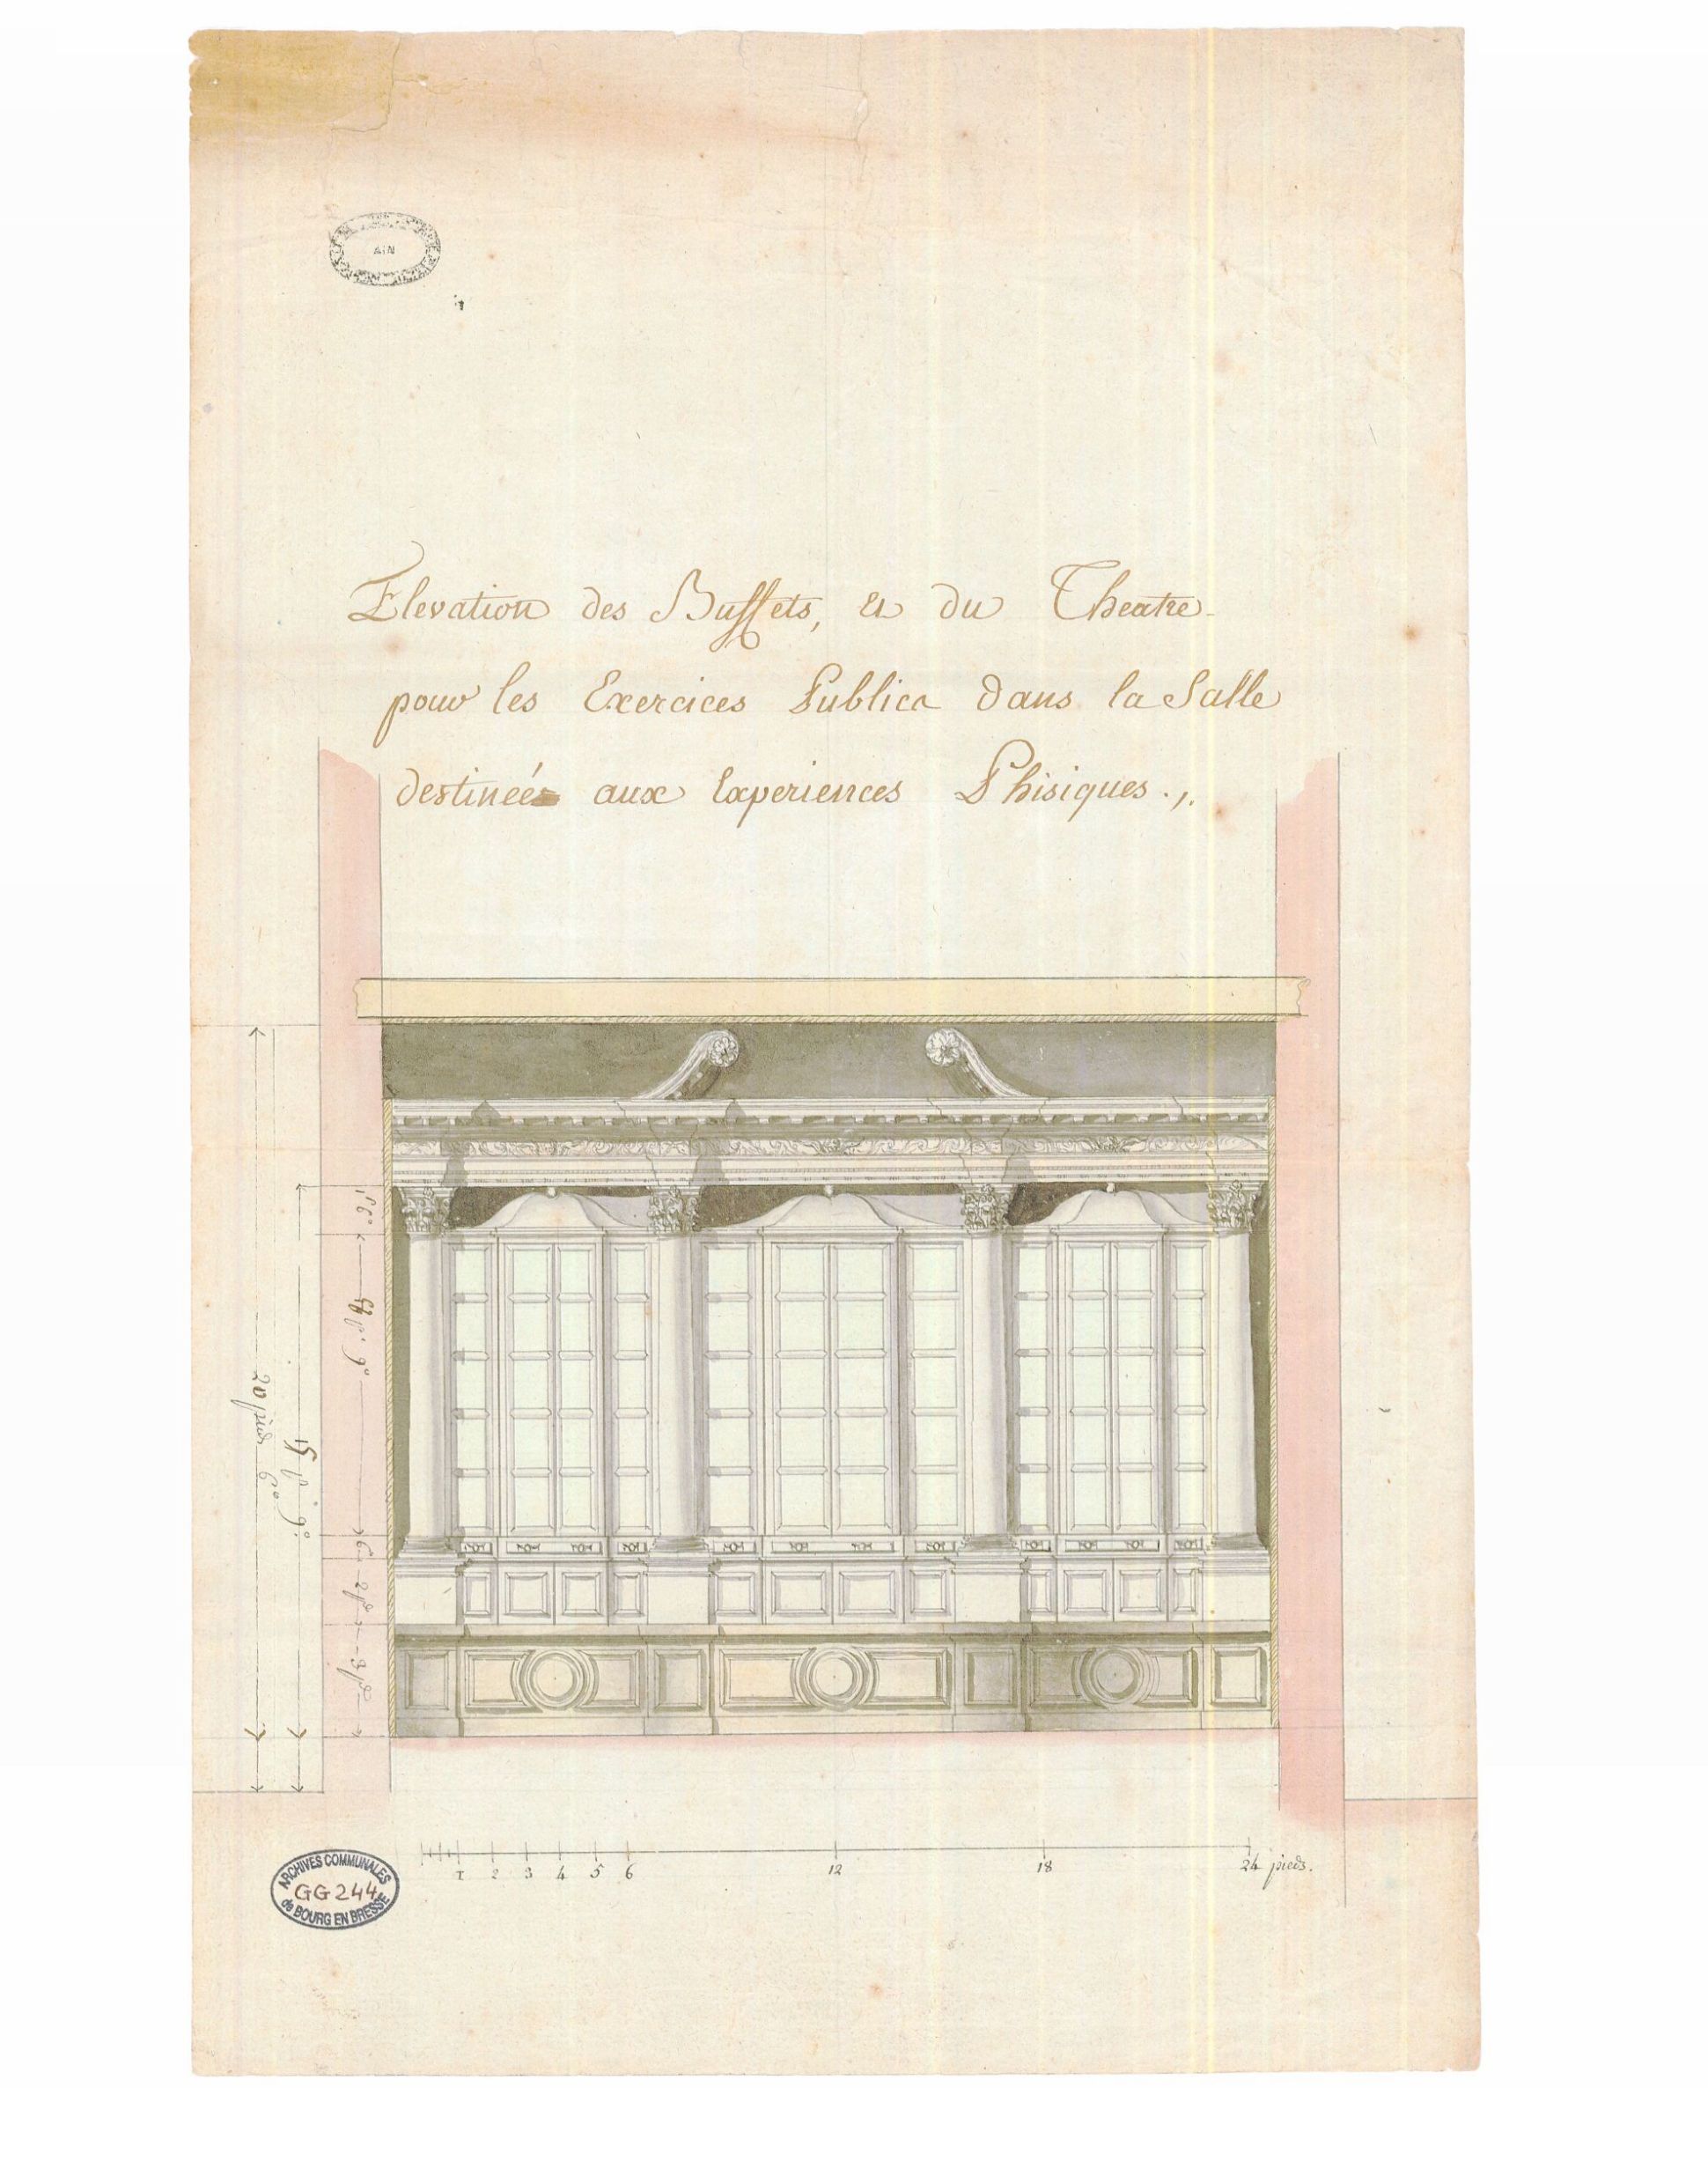 AIN
Elevation des Buffets, et du Theatre
pour les Exercices Publics dans la Salle
destinée aux Experiences Phisiques.,.
20 pieds 6°
15 p. 9°
1 2 3 4 5 6 12 18 24 pieds.
ARCHIVES COMMUNALES
GG 244
de BOURG EN BRESSE